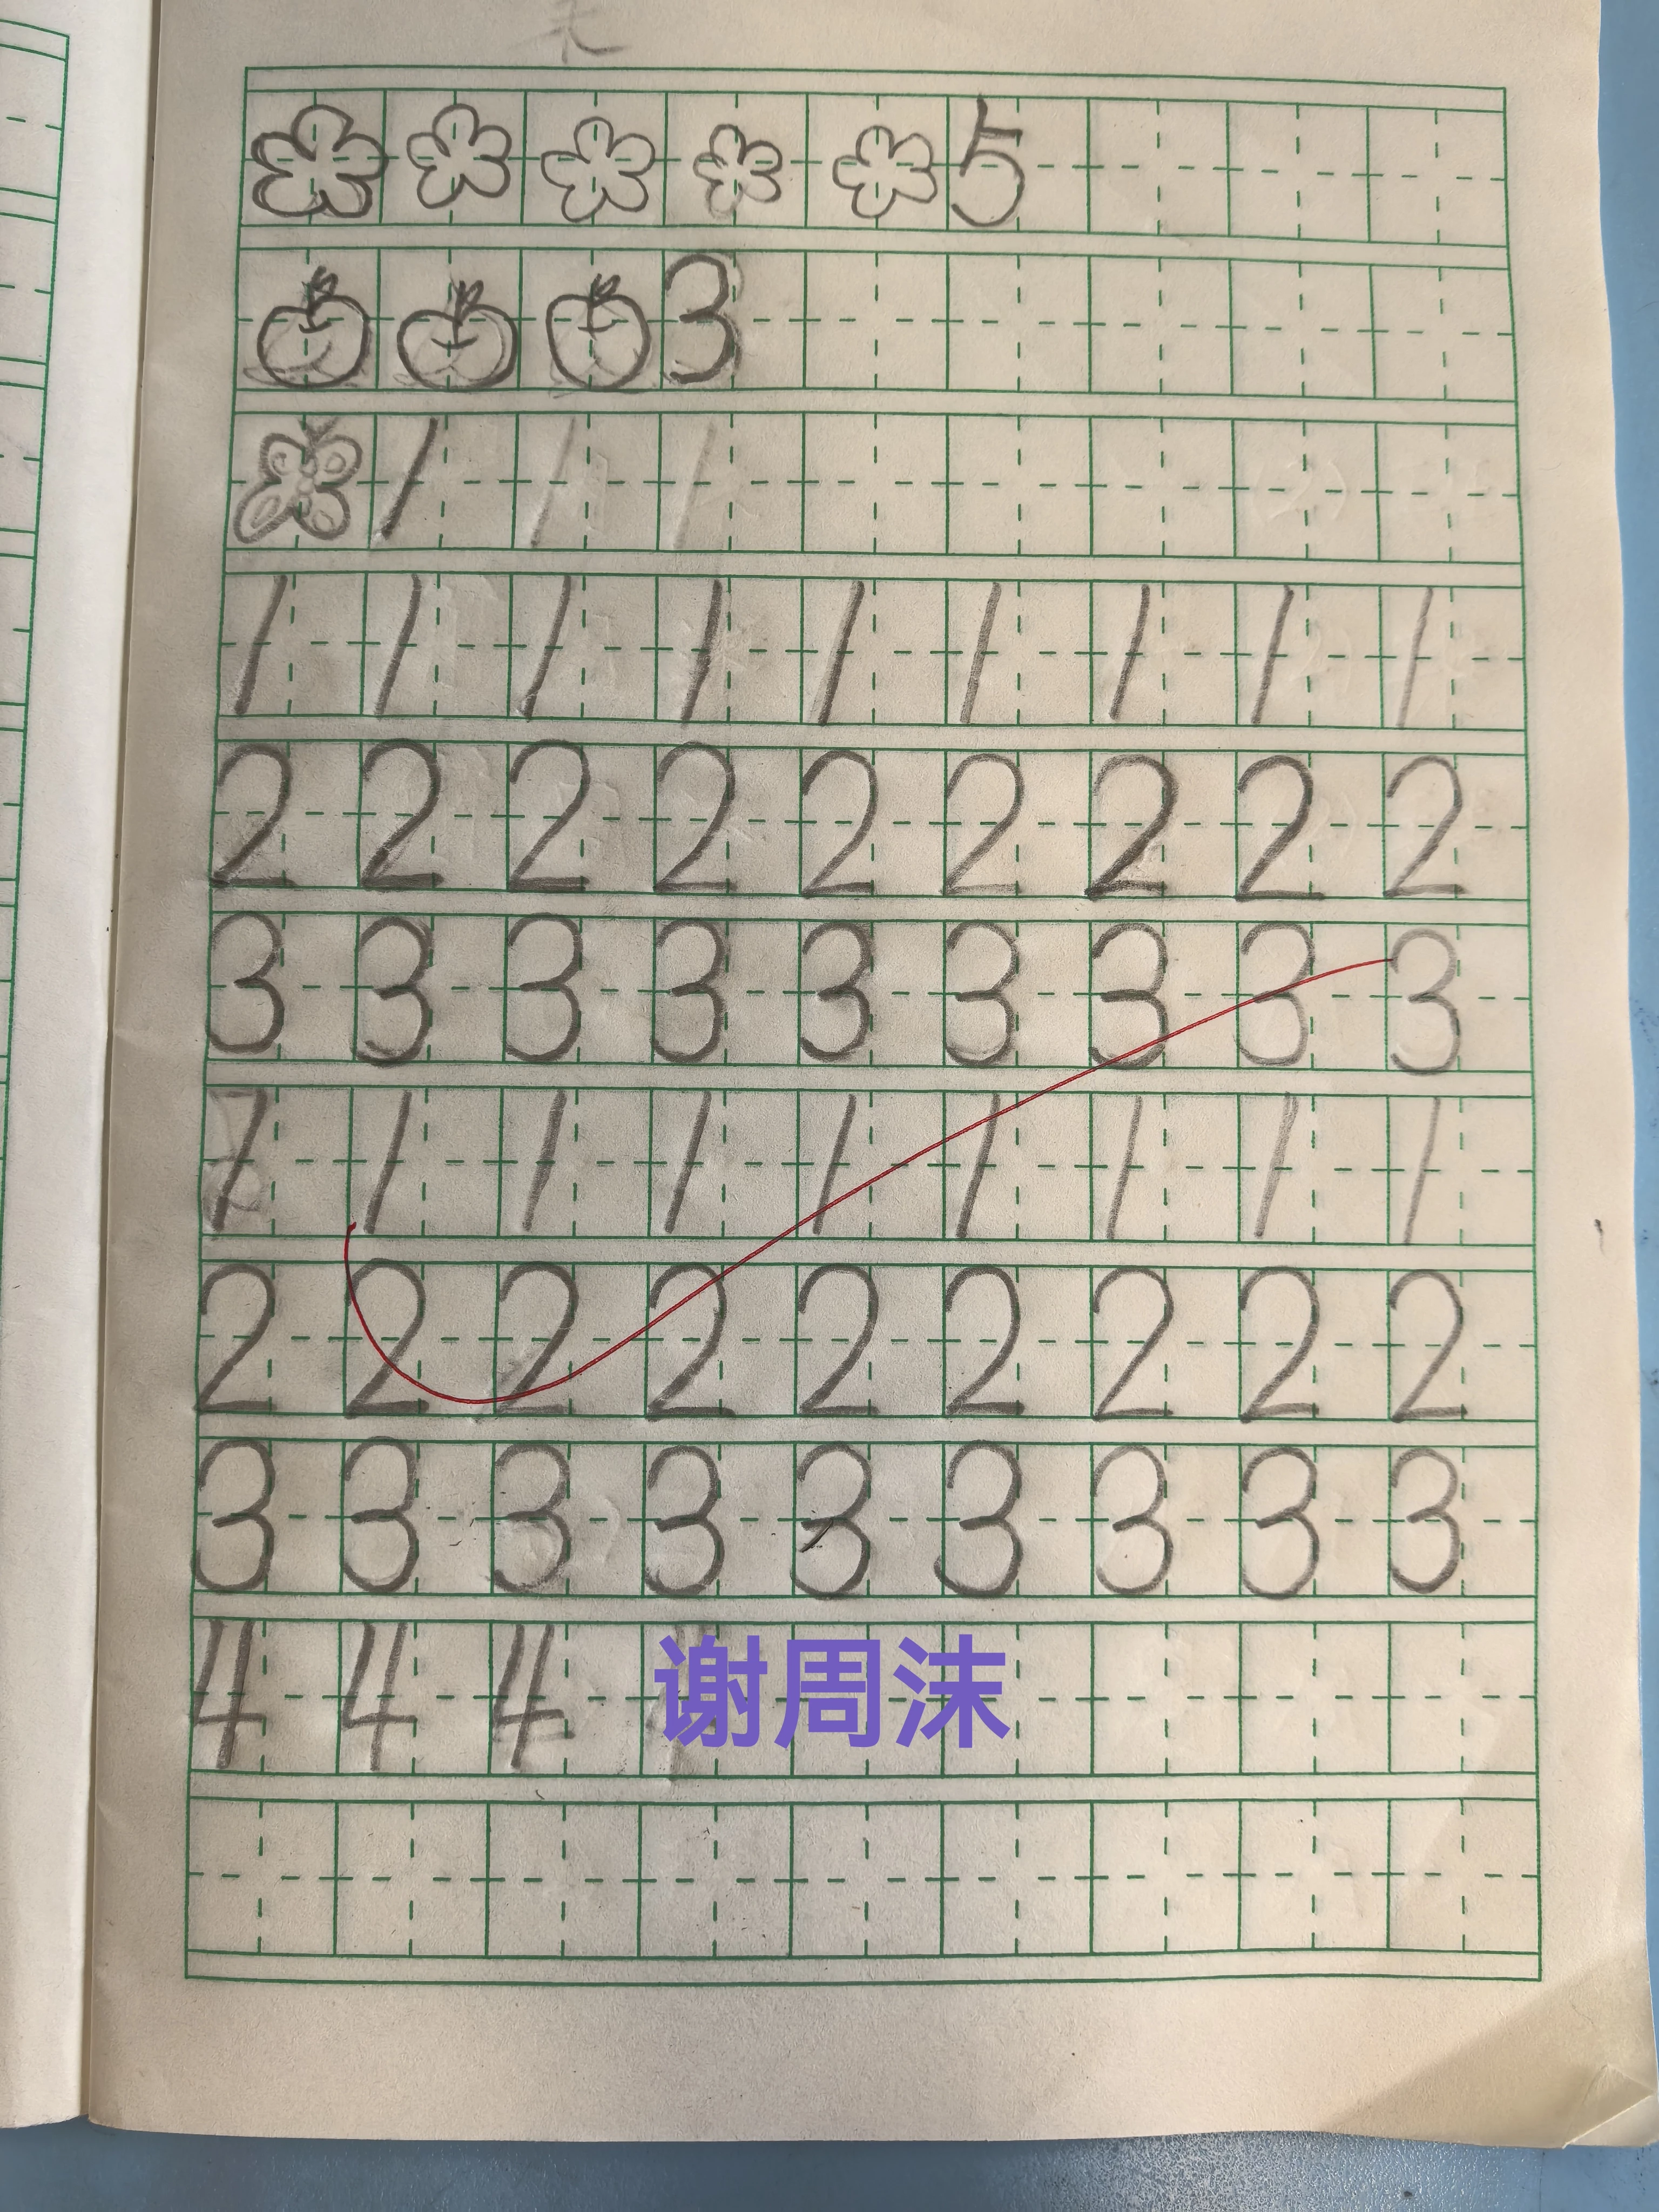 5
3
1 1 1
1 1 1 1 1 1 1 1 1
2 2 2 2 2 2 2 2 2
3 3 3 3 3 3 3 3 3
1 1 1 1 1 1 1 1
2 2 2 2 2 2 2 2 2
3 3 3 3 3 3 3 3 3
4 4 4
谢周沫